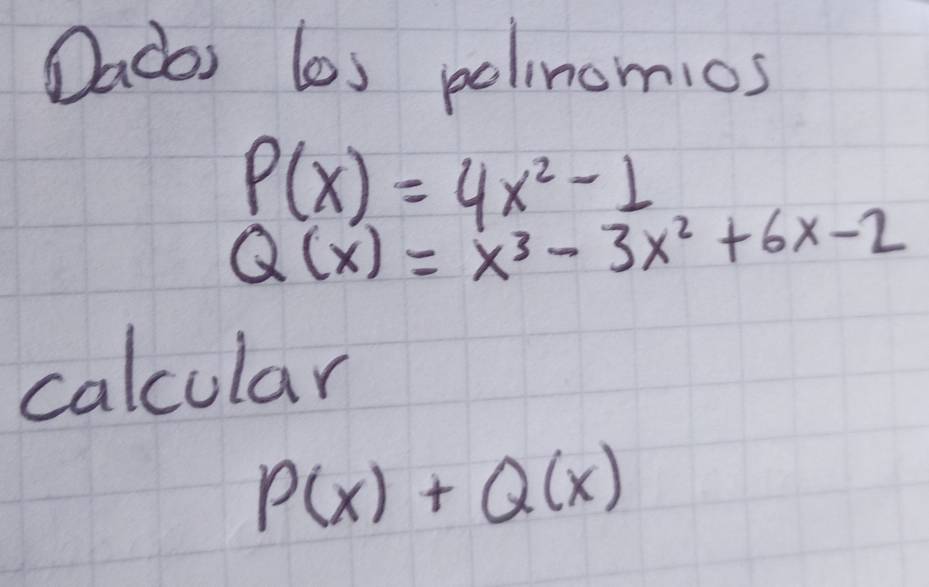 Dados los polinomios
P(x) = 4x² - 1
Q(x) = x³ - 3x² + 6x - 2
calcular
P(x) + Q(x)